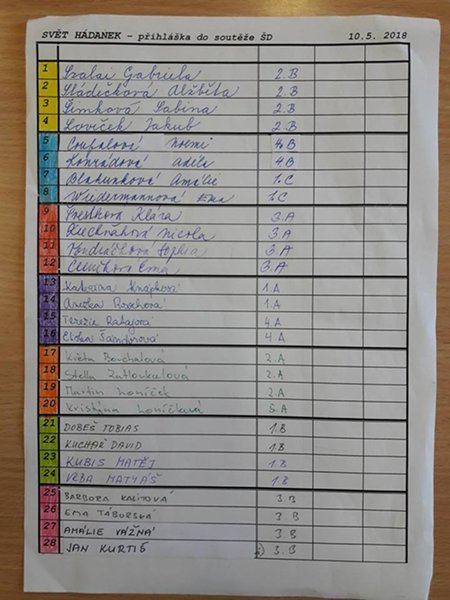 SVĚT HÁDANEK – přihláška do soutěže ŠD 10.5. 2018
1 Szalai Gabriela 2.B
2 Sládečková Alžběta 2.B
3 Šimková Sabina 2.B
4 Lovíček Jakub 2.B
5 Coufalová Noemi 4.B
6 Konrádová Adéla 4.B
7 Amálie 1.C
8 Wiedermannová Ema 1.C
9 Klára 3.A
10 Nicola 3.A
11 Sophia 3.A
12 Ema 3.A
13 1.A
14 1.A
15 Terezie Ratajová 4.A
16 Eliška Šandorová 4.A
17 Květa Bouchalová 2.A
18 Stella Zatloukalová 2.A
19 Martin Loníček 2.A
20 Kristýna Loníčková 5.A
21 DOBEŠ TOBIAS 1.B
22 KUCHAŘ DAVID 1.B
23 KUBIS MATĚJ 1.B
24 VRBA MATYÁŠ 1.B
25 BARBORA 3.B
26 EMA TÁBORSKÁ 3 B
27 AMÁLIE VÁŽNÁ 3 B
28 JAN KURTIŠ 3.B